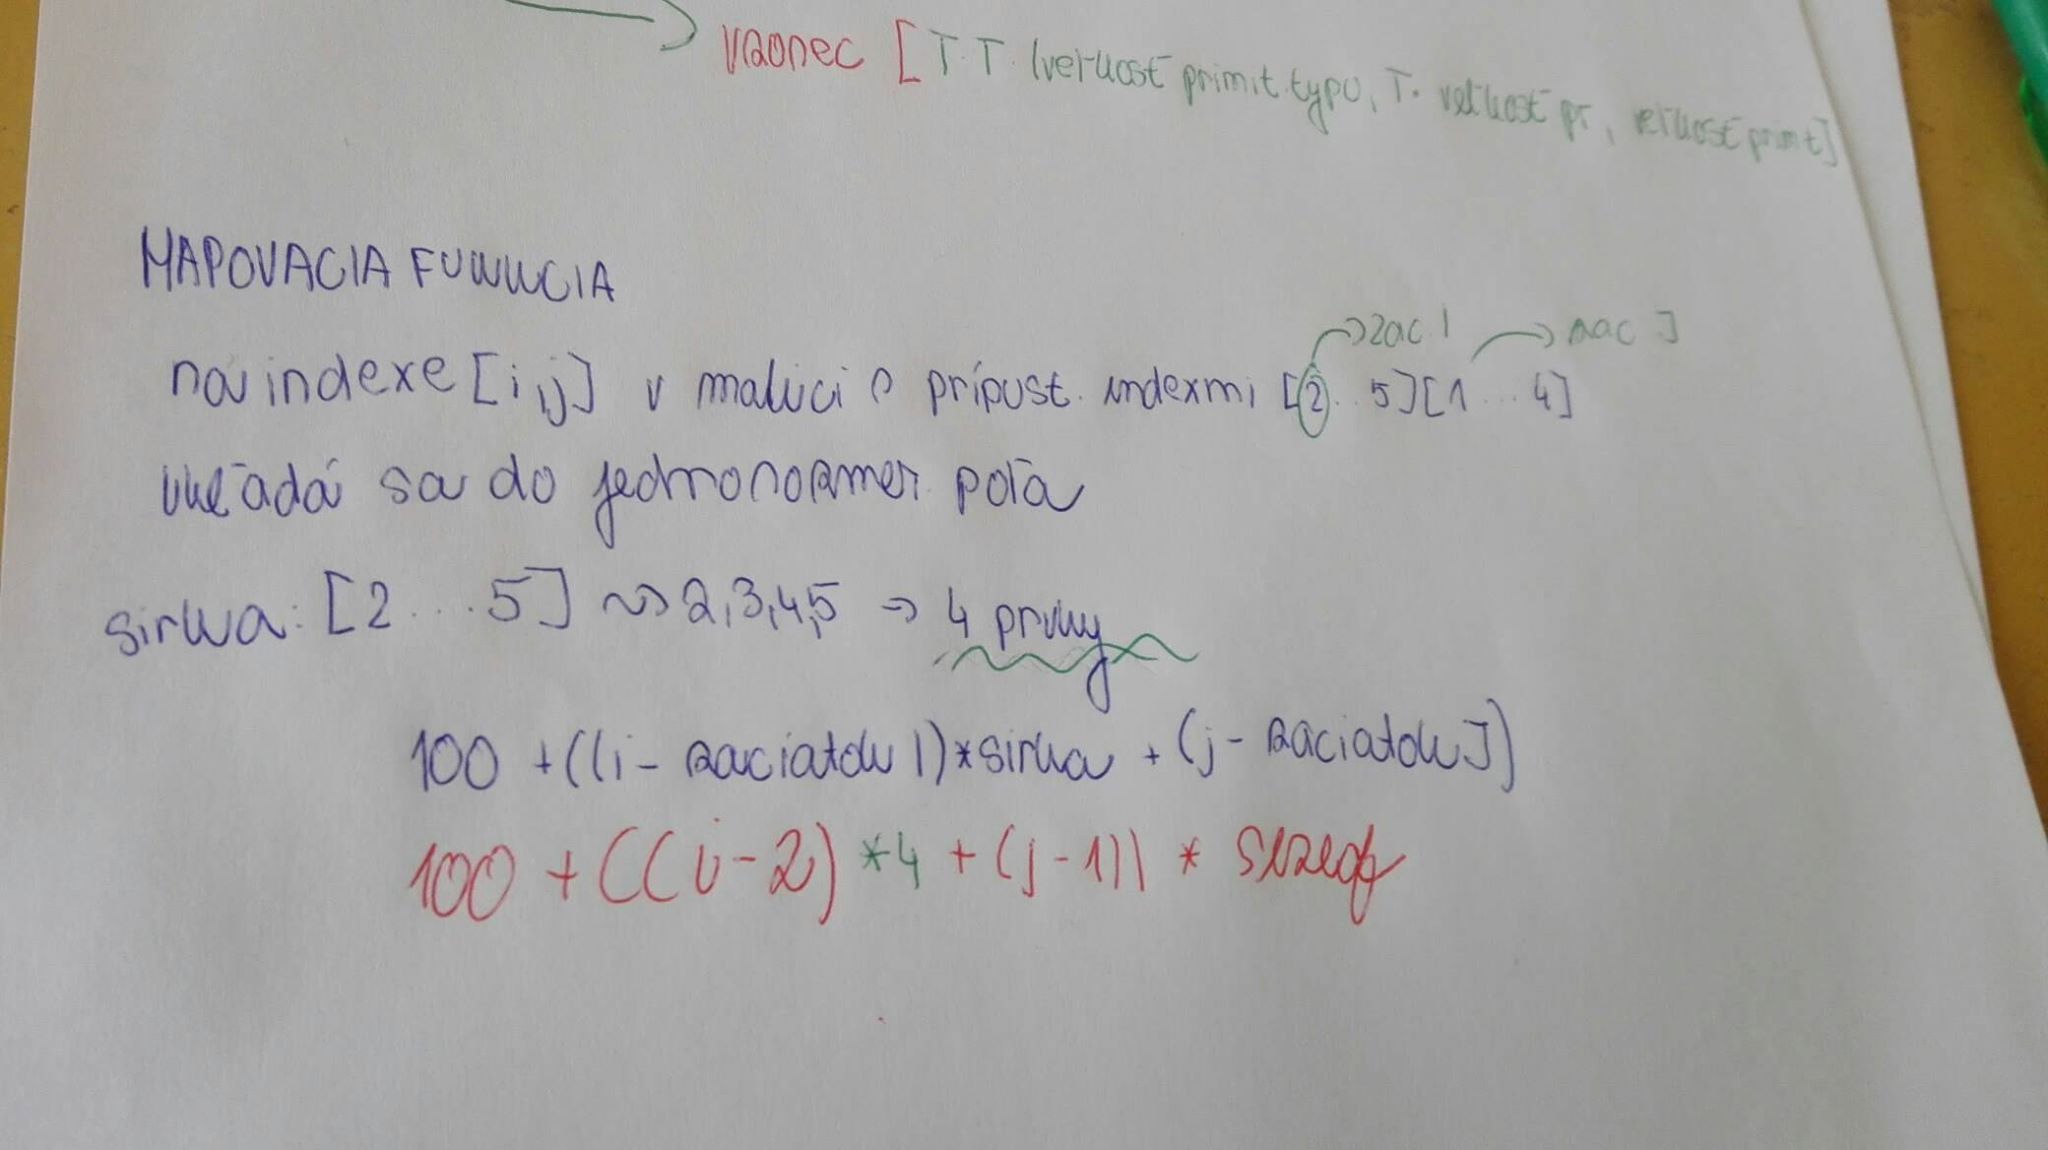 vzorec [T.T. (veľkosť primit.typu, T. veľkosť pr, veľkosť primt]
MAPOVACIA FUNKCIA
→zac I → zac J
na indexe [i,j] v matici o prípust. indexmi [2..5][1...4]
vkladá sa do jednorozmer. poľa
sirka: [2...5] ~> 2,3,4,5 → 4 prvky
100 + ((i - zaciatok I)*sirka + (j - zaciatok J)
100 + ((i-2) *4 + (j-1)) * sizeof